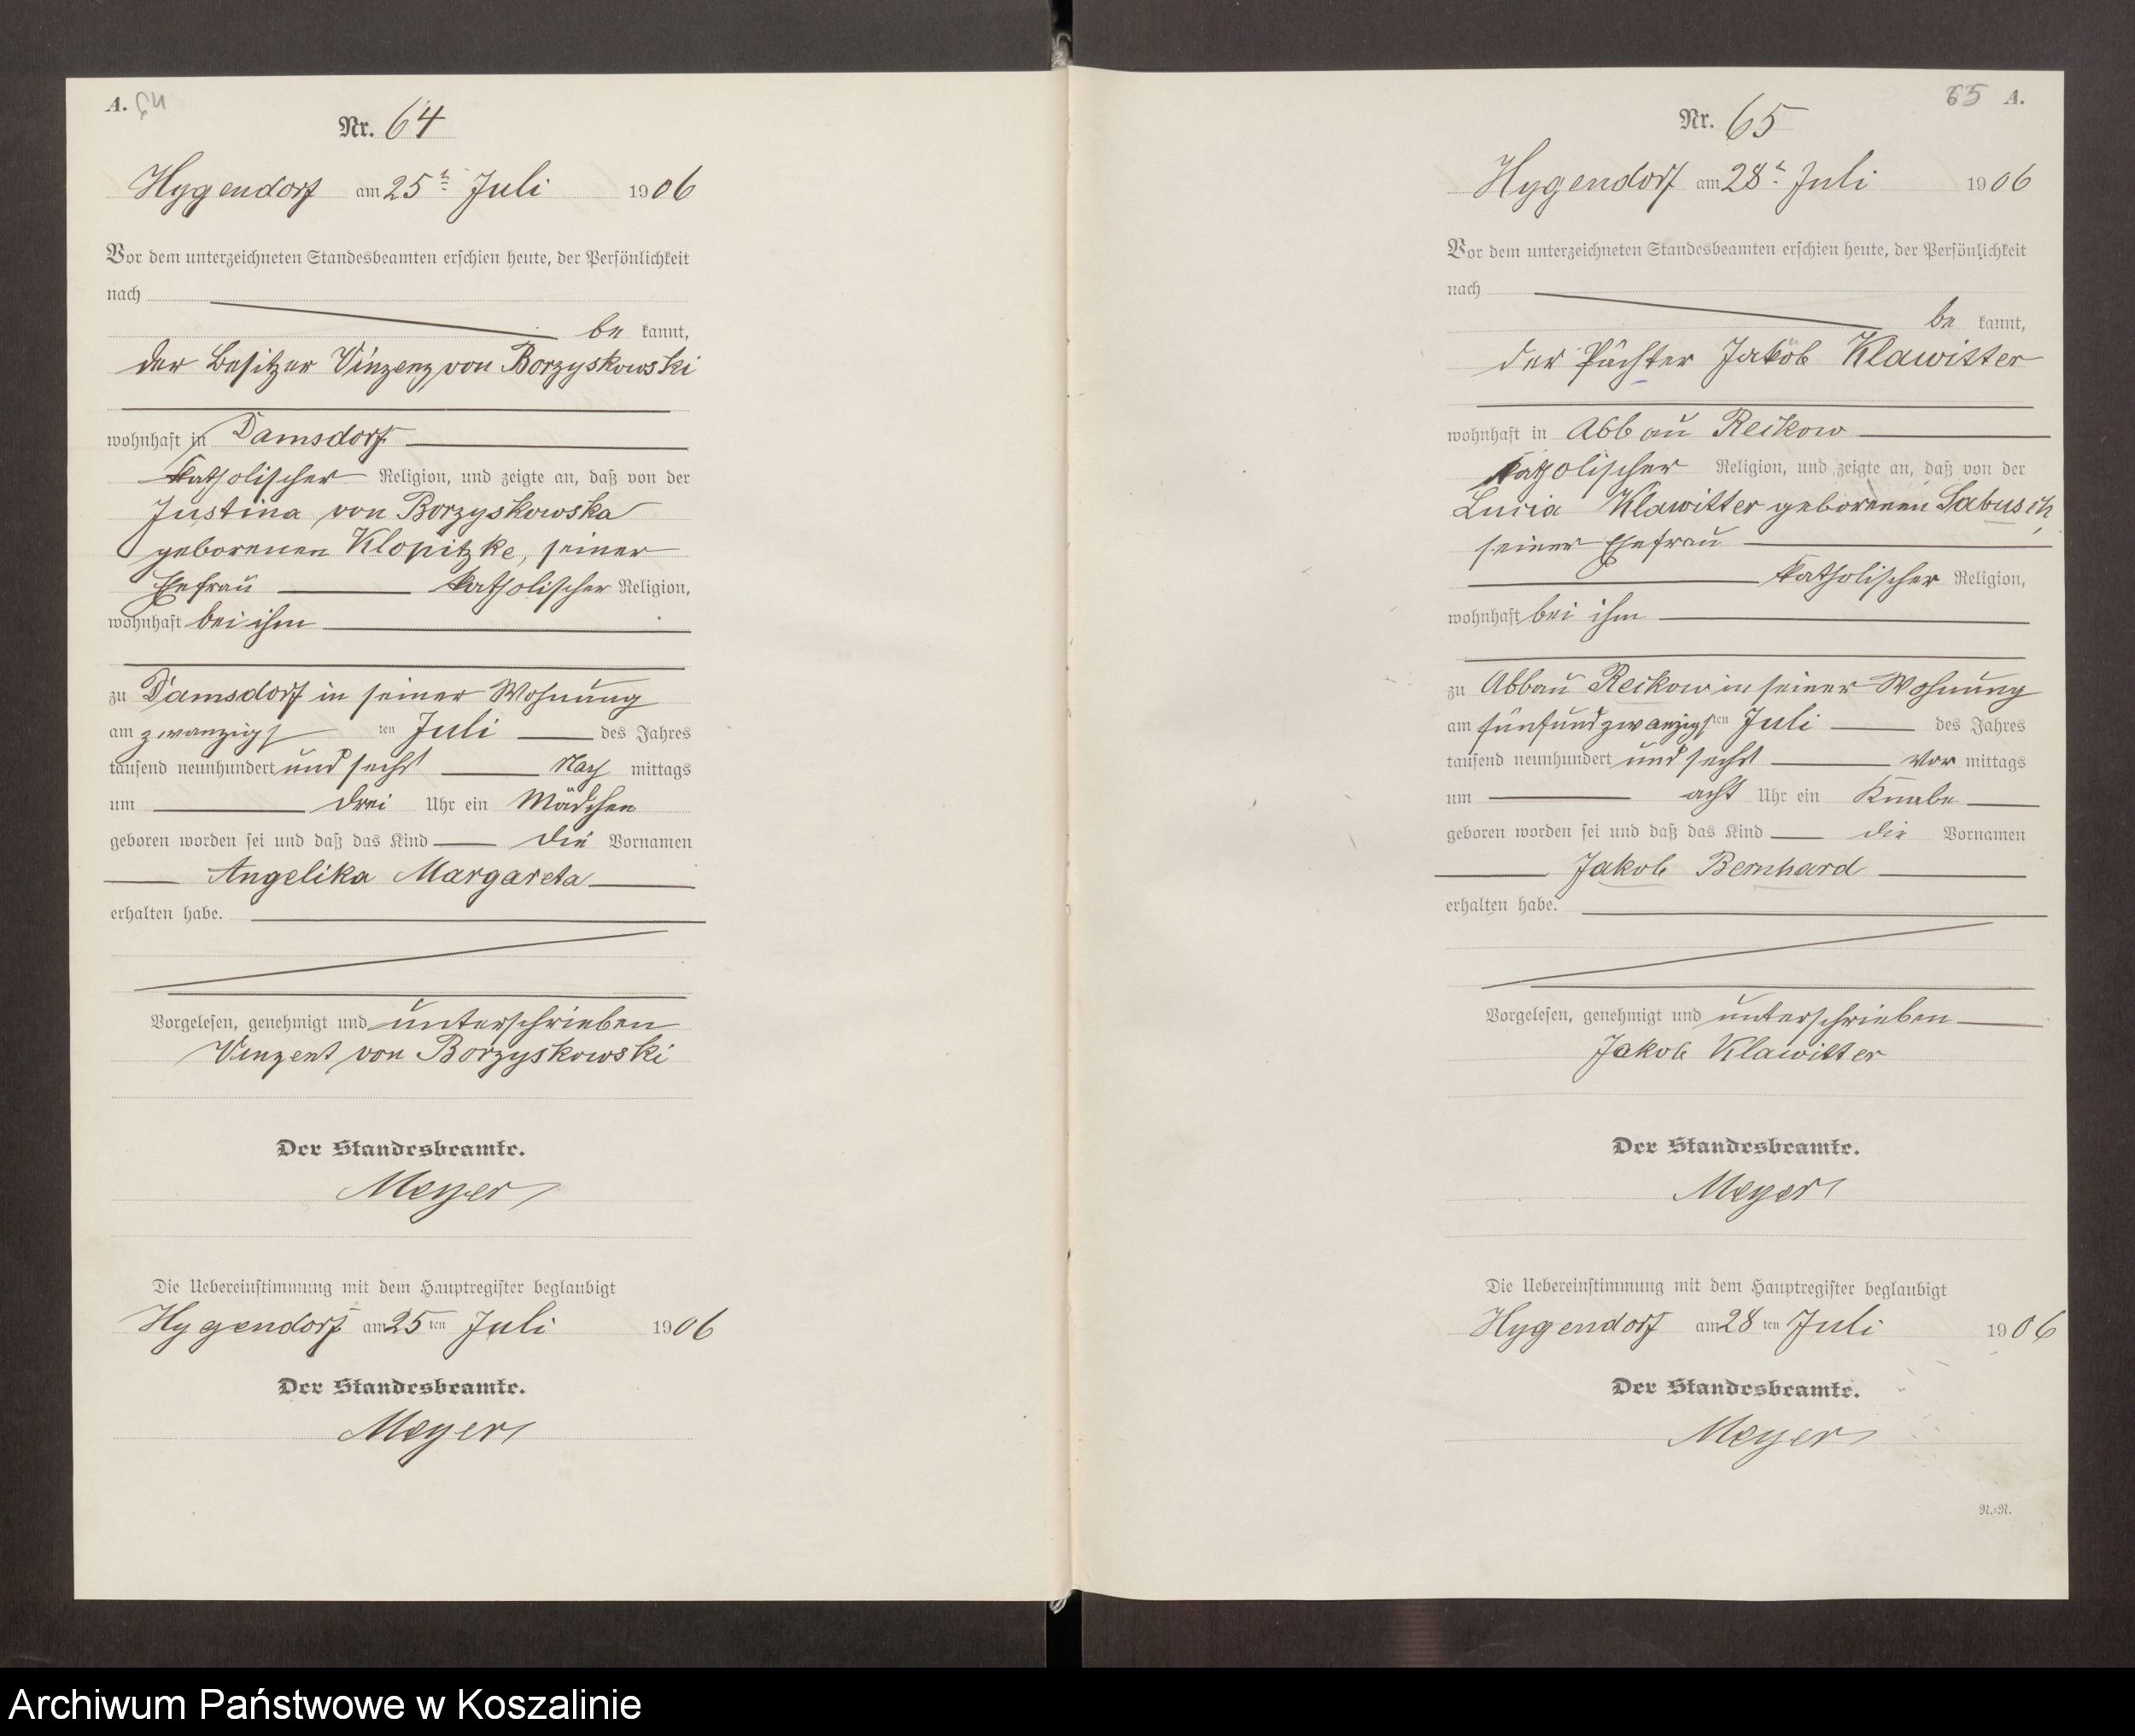 A. 64
Nr. 64
Hygendorf am 25ten Juli 1906
Vor dem unterzeichneten Standesbeamten erschien heute, der Persönlichkeit
nach
be kannt,
der Besitzer Vinzenz von Borzyskowski
wohnhaft in Damsdorf
katholischer Religion, und zeigte an, daß von der
Justina von Borzyskowska
geborenen Klopitzke, seiner
Ehefrau katholischer Religion,
wohnhaft bei ihm
zu Damsdorf in seiner Wohnung
am zwanzigsten Juli des Jahres
tausend neunhundert und sechs Nach mittags
um drei Uhr ein Mädchen
geboren worden sei und daß das Kind die Vornamen
Angelika Margareta
erhalten habe.
Vorgelesen, genehmigt und unterschrieben
Vinzent von Borzyskowski
Der Standesbeamte.
Meyer
Die Uebereinstimmung mit dem Hauptregister beglaubigt
Hygendorf am 25ten Juli 1906
Der Standesbeamte.
Meyer
65 A.
Nr. 65
Hygendorf am 28ten Juli 1906
Vor dem unterzeichneten Standesbeamten erschien heute, der Persönlichkeit
nach
be kannt,
der Pächter Jakob Klawitter
wohnhaft in Abbau Reckow
katholischer Religion, und zeigte an, daß von der
Lucia Klawitter geborenen
seiner Ehefrau
katholischer Religion,
wohnhaft bei ihm
zu Abbau Reckow in seiner Wohnung
am fünfundzwanzigsten Juli des Jahres
tausend neunhundert und sechs Vor mittags
um acht Uhr ein Knabe
geboren worden sei und daß das Kind die Vornamen
Jakob Bernhard
erhalten habe.
Vorgelesen, genehmigt und unterschrieben
Jakob Klawitter
Der Standesbeamte.
Meyer
Die Uebereinstimmung mit dem Hauptregister beglaubigt
Hygendorf am 28ten Juli 1906
Der Standesbeamte.
Meyer
N.=N.
Archiwum Państwowe w Koszalinie